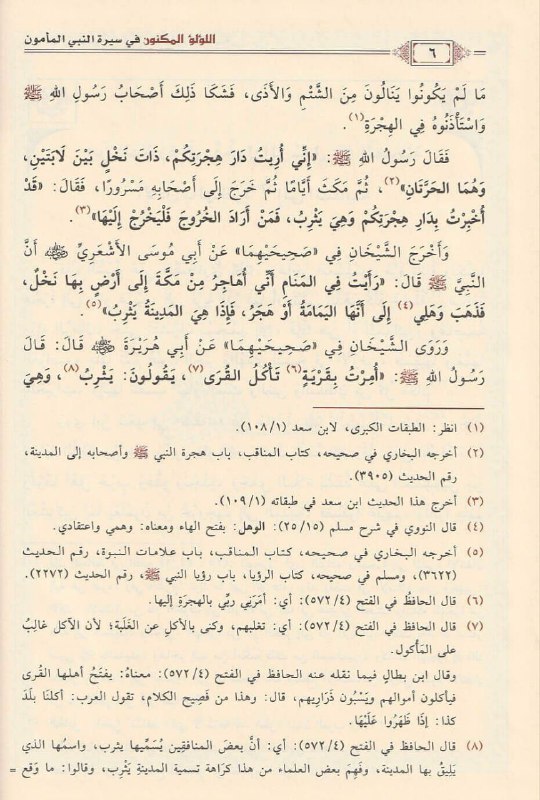 ٦
اللؤلؤ المكنون في سيرة النبي المأمون
مَا لَمْ يَكُونُوا يَنَالُونَ مِنَ الشَّتْمِ وَالأَذَى، فَشَكَا ذَلِكَ أَصْحَابُ رَسُولِ اللهِ ﷺ
وَاسْتَأْذَنُوهُ فِي الهِجْرَةِ(١).
فَقَالَ رَسُولُ اللهِ ﷺ: «إِنِّي أُرِيتُ دَارَ هِجْرَتِكُمْ، ذَاتَ نَخْلٍ بَيْنَ لَابَتَيْنِ،
وَهُمَا الحَرَّتَانِ»(٢)، ثُمَّ مَكَثَ أَيَّامًا ثُمَّ خَرَجَ إِلَى أَصْحَابِهِ مَسْرُورًا، فَقَالَ: «قَدْ
أُخْبِرْتُ بِدَارِ هِجْرَتِكُمْ وَهِيَ يَثْرِبُ، فَمَنْ أَرَادَ الخُرُوجَ فَلْيَخْرُجْ إِلَيْهَا»(٣).
وَأَخْرَجَ الشَّيْخَانِ فِي «صَحِيحَيْهِمَا» عَنْ أَبِي مُوسَى الأَشْعَرِيِّ رضي الله عنه أَنَّ
النَّبِيَّ ﷺ قَالَ: «رَأَيْتُ فِي المَنَامِ أَنِّي أُهَاجِرُ مِنْ مَكَّةَ إِلَى أَرْضٍ بِهَا نَخْلٌ،
فَذَهَبَ وَهَلِي(٤) إِلَى أَنَّهَا اليَمَامَةُ أَوْ هَجَرُ، فَإِذَا هِيَ المَدِينَةُ يَثْرِبُ»(٥).
وَرَوَى الشَّيْخَانِ فِي «صَحِيحَيْهِمَا» عَنْ أَبِي هُرَيْرَةَ رضي الله عنه قَالَ: قَالَ
رَسُولُ اللهِ ﷺ: «أُمِرْتُ بِقَرْيَةٍ(٦) تَأْكُلُ القُرَى(٧)، يَقُولُونَ: يَثْرِبُ(٨)، وَهِيَ
(١) انظر: الطبقات الكبرى، لابن سعد (١٠٨/١).
(٢) أخرجه البخاري في صحيحه، كتاب المناقب، باب هجرة النبي ﷺ وأصحابه إلى المدينة،
رقم الحديث (٣٩٠٥).
(٣) أخرج هذا الحديث ابن سعد في طبقاته (١٠٩/١).
(٤) قال النووي في شرح مسلم (٢٥/١٥): الوهل: بفتح الهاء ومعناه: وهمي واعتقادي.
(٥) أخرجه البخاري في صحيحه، كتاب المناقب، باب علامات النبوة، رقم الحديث
(٣٦٢٢)، ومسلم في صحيحه، كتاب الرؤيا، باب رؤيا النبي ﷺ، رقم الحديث (٢٢٧٢).
(٦) قال الحافظُ في الفتح (٥٧٢/٤): أي: أمرَني ربِّي بالهجرَةِ إليها.
(٧) قال الحافظ في الفتح (٥٧٢/٤): أي: تغلبهم، وكنى بالأكل عن الغَلَبة؛ لأن الآكل غالِبٌ
على المَأكول.
وقال ابن بطال فيما نقله عنه الحافظ في الفتح (٥٧٢/٤): معناهُ: يفتَحُ أهلها القُرى
فيأكلون أموالهم ويَسْبُون ذَرَارِيهم، قال: وهذا من فَصِيح الكلام، تقول العرب: أكلنا بلَدَ
كذا: إذَا ظَهَرُوا عَلَيْهَا.
(٨) قال الحافظ في الفتح (٥٧٢/٤): أي: أنَّ بعضَ المنافقِين يُسَمِّيها يثرب، واسمُها الذي
يَلِيقُ بها المدينة، وفَهِمَ بعض العلماء من هذا كَرَاهة تسمية المدينةِ يَثْرِب، وقالوا: ما وَقع =